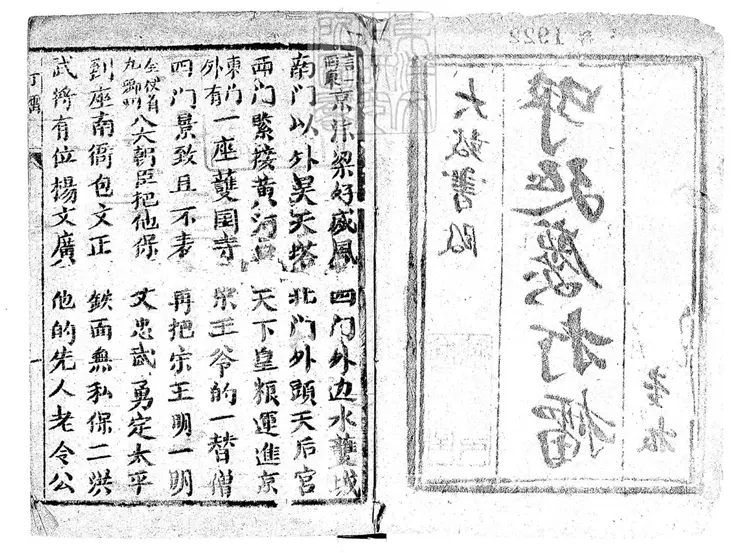 1922
呼延慶打擂
大鼓書段
東京汴梁好威風 四门外边水雙城
南门以外昊天塔 北门外頭天后宮
西门緊接黄河口 天下皇粮運進京
東门外有一座雙国寺 宋王爷的一替僧
四门景致且不表 再把宗王明一明
八大朝臣把他保 文忠武勇定太平
到座南衙包文正 鉄面無私保二洪
武將有位楊文廣 他的先人老令公